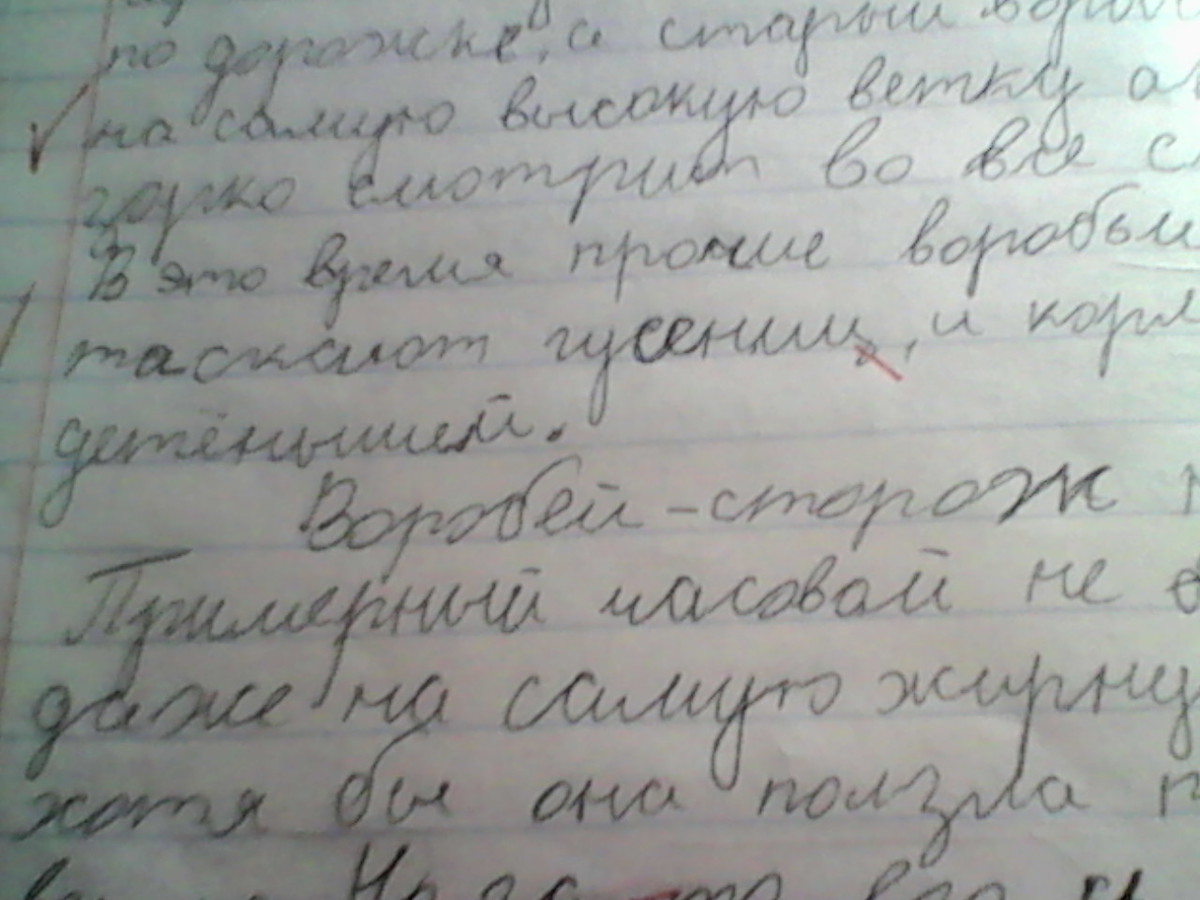 по дорожке, а старый
на самую высокую ветку
зорко смотрит во все
В это время прочие воробьи
таскают гусениц, и
детёнышей.
Воробей-сторож
Примерный часовой не
даже на самую
хотя бы она ползла